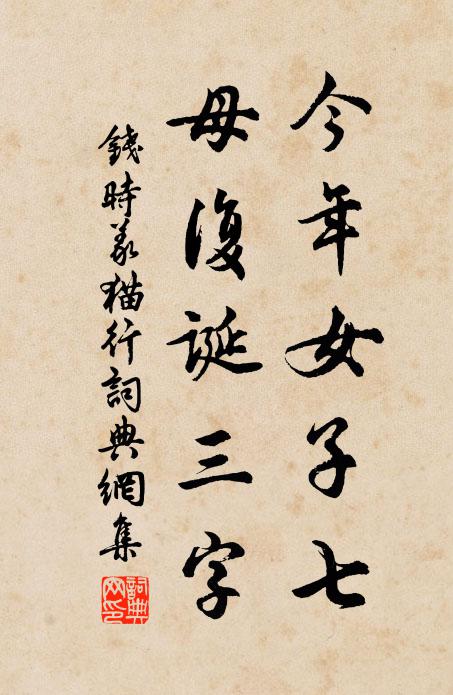 今年女子七
母復誕三字
錢時義猫行詞典網集
詞典網印